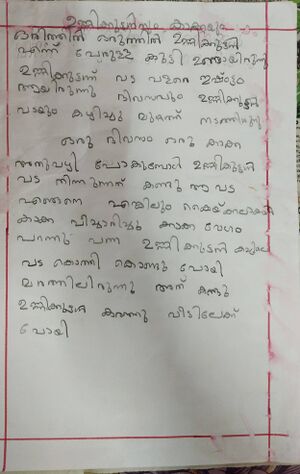 ഉണ്ണിക്കുട്ടനും കാക്കയും
ഒരിടത്ത് ഒരുന്നിൻ ഉണ്ണിക്കുട്ടൻ
എന്ന് പേരുള്ള കുട്ടി ഉണ്ടായിരുന്നു
ഉണ്ണിക്കുട്ടന് വട വളരെ ഇഷ്ടം
ആയിരുന്നു ദിവസവും ഉണ്ണിക്കുട്ടൻ
വടയും കഴിച്ചു മുറ്റത്ത് നടത്തിരുന്നു
ഒരു ദിവസം ഒരു കാക്ക
അതുവഴി പോകുമ്പോൾ ഉണ്ണിക്കുട്ടൻ
വട തിന്നുന്നത് കണ്ടു ആ വട
എങ്ങനെ എങ്കിലും കൈക്കലാക്കാൻ
കാക്ക വിചാരിച്ചു കാക്ക വേഗം
പറന്നു വന്ന ഉണ്ണിക്കുട്ടൻ
വട കൊത്തി കൊണ്ടു പോയി
മരത്തിലിരുന്നു അത് കണ്ടു
ഉണ്ണിക്കുട്ടൻ കരഞ്ഞു വീടിലേക്ക്
പോയി